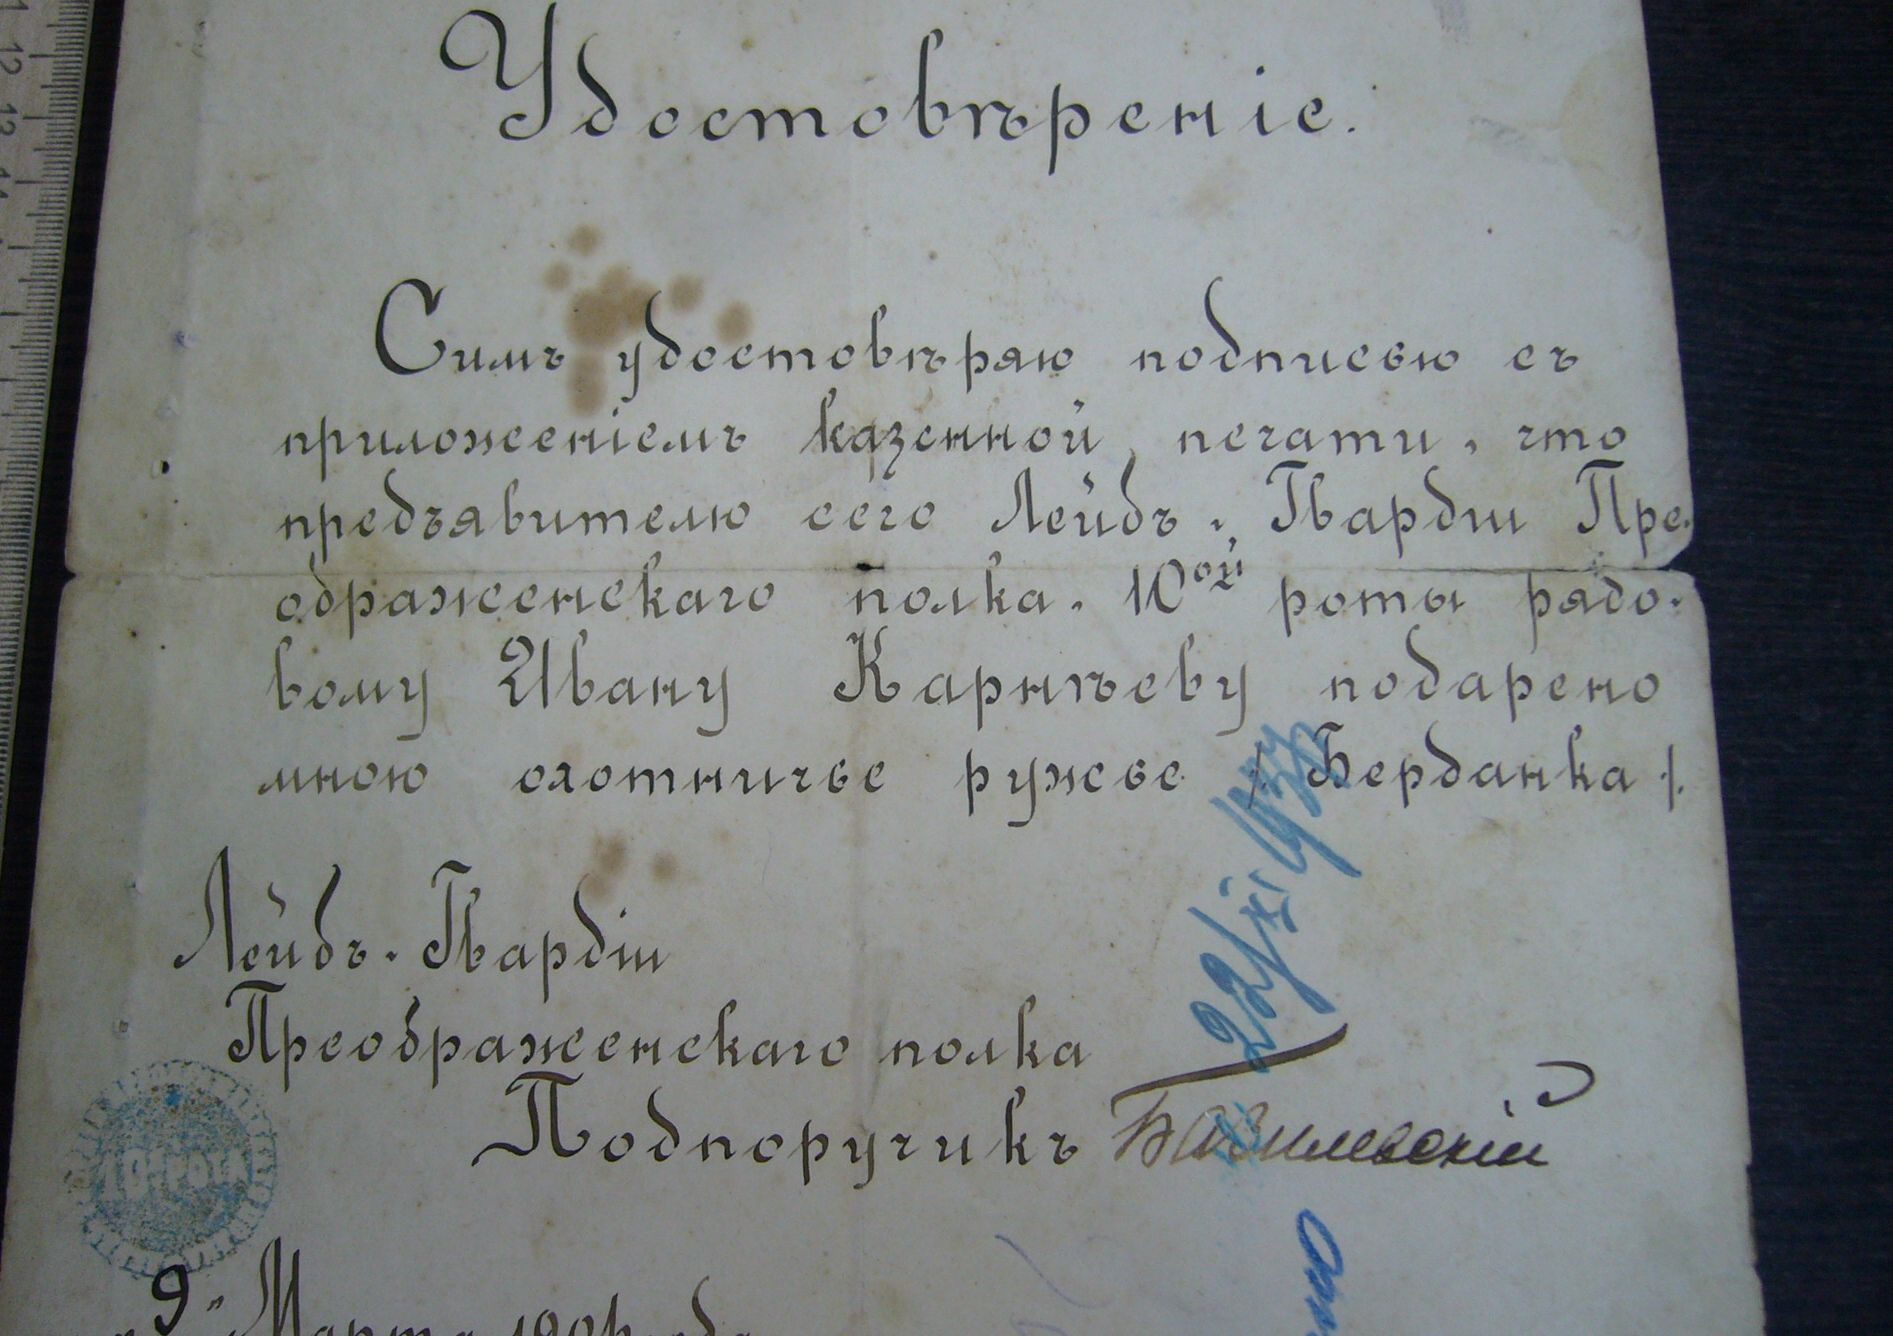 Удостовѣреніе.
Симъ удостовѣряю подписью съ
приложеніемъ казенной печати, что
предъявителю сего Лейбъ-Гвардіи Пре-
ображенскаго полка. 10ой роты рядо-
вому Ивану Карнѣеву подарено
мною охотничье ружье /. Берданка /.
Лейбъ-Гвардіи
Преображенскаго полка
Подпоручикъ Базилевскій
10-РОТА
9 Марта